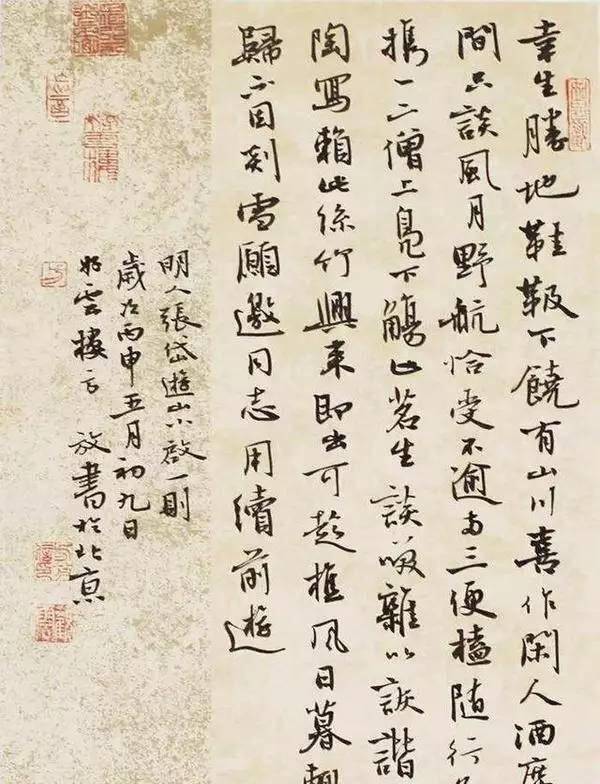 幸生勝地鞋靸下饒有山川喜作閑人酒席
間只談風月野航恰受不逾两三便榼随行
携一二僧上鳧下觴止茗生談咲雜以詼諧
陶寫賴此絲竹興来即出可趁樵風日暮輒
歸不因剡雪願邀同志用續前遊
明人張岱遊山小啟一則
歲次丙申五月初九日
雲樓方放書於北京